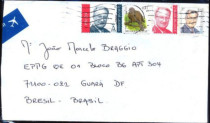 Mr João Marcelo BRAGGIO
EPTG QE 01 BLOCO B6 APT 304
71100-022 GUARA DF.
BRESIL - BRASIL.